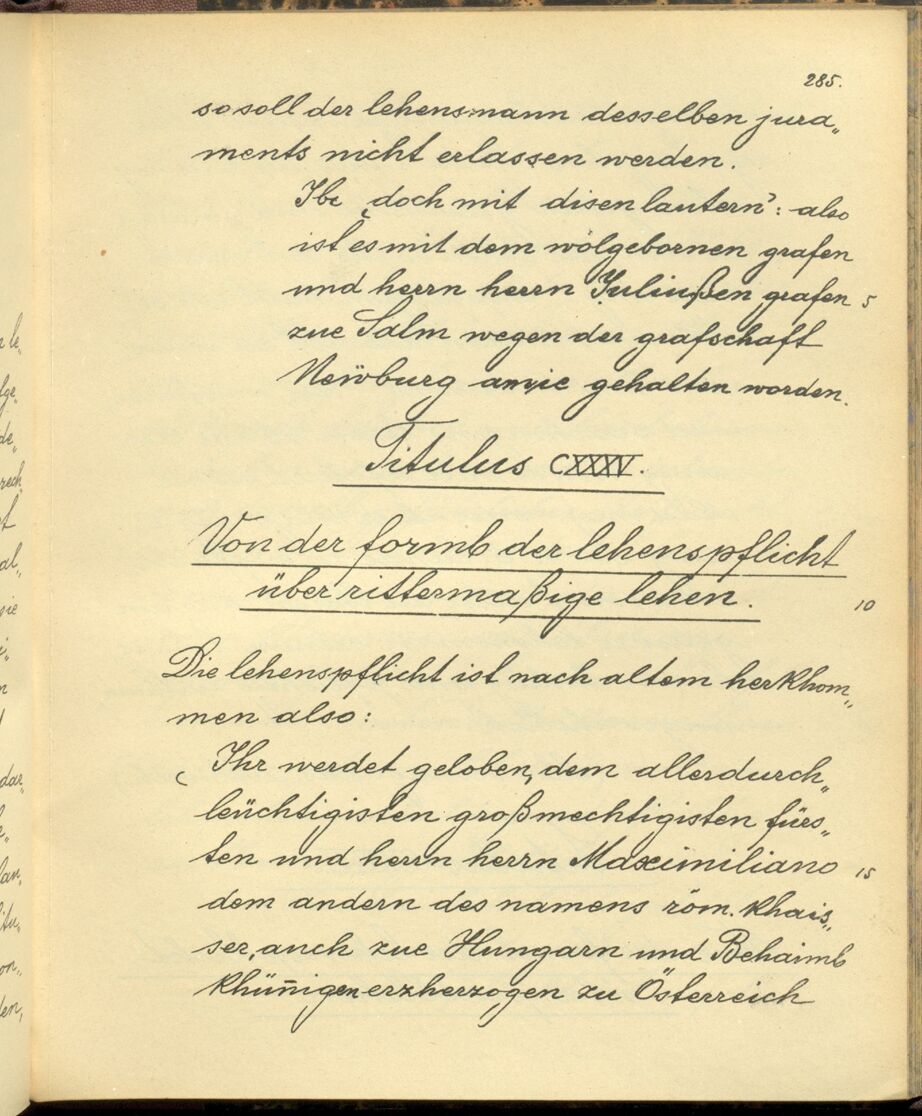 285.
so soll der lehensmann desselben jura„
ments nicht erlassen werden.
Ibi ‚doch mit disen lautern’: also
ist es mit dem wolgebornen grafen
und herrn herrn Juliußen grafen 5
zue Salm wegen der grafschaft
Newburg gehalten worden.
Titulus CXXXV.
Von der formb der lehenspflicht
über rittermaßige lehen. 10
Die lehenspflicht ist nach altem herkhom„
men also:
‚Ihr werdet geloben, dem allerdurch„
leüchtigisten großmechtigisten fürs„
ten und herrn herrn Maximiliano 15
dem andern des namens röm. khais„
ser, auch zue Hungarn und Behaimb
khünigen erzherzogen zu Österreich